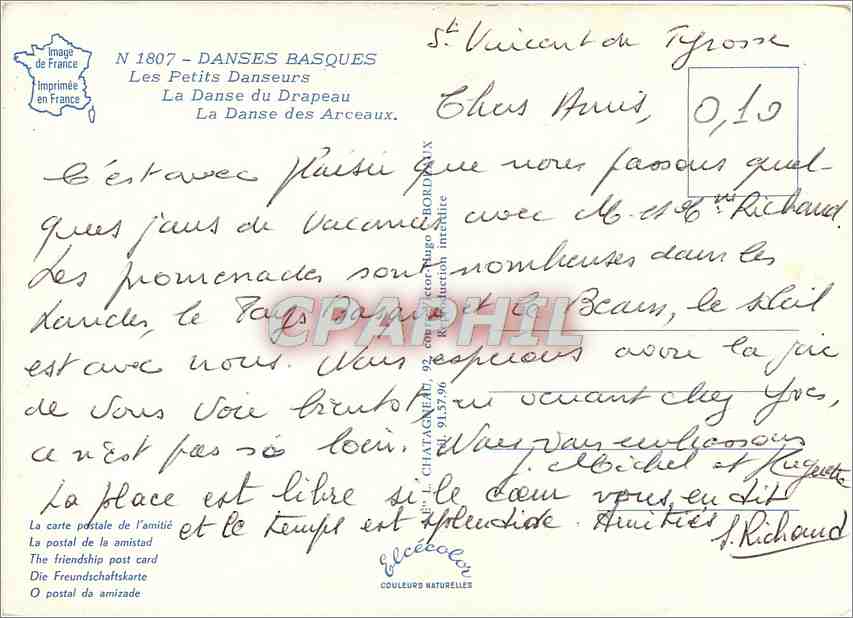 Image
de France
Imprimée
en France
N 1807 - DANSES BASQUES
Les Petits Danseurs
La Danse du Drapeau
La Danse des Arceaux.
St Vincent de Tyrosse
0,10
Chers Amis,
C'est avec plaisir que nous passons quel-
ques jours de vacances avec M. et Mme Richaud.
Les promenades sont nombreuses dans les
Landes, le Pays Basque et le Bearn, le soleil
est avec nous. Nous espérons avoir la joie
de vous voir bientôt, en venant chez Yves,
ce n'est pas si loin. Nous vous embrassons
J. Michel et Huguette
La place est libre si le cœur vous en dit
et le temps est splendide. Amitiés
S. Richaud
Ets L. CHATAGNEAU, 92, cours Victor-Hugo BORDEAUX
Tél. 91.57.96 Reproduction interdite
CPAPHIL
La carte postale de l'amitié
La postal de la amistad
The friendship post card
Die Freundschaftskarte
O postal da amizade
Elcécolor
COULEURS NATURELLES